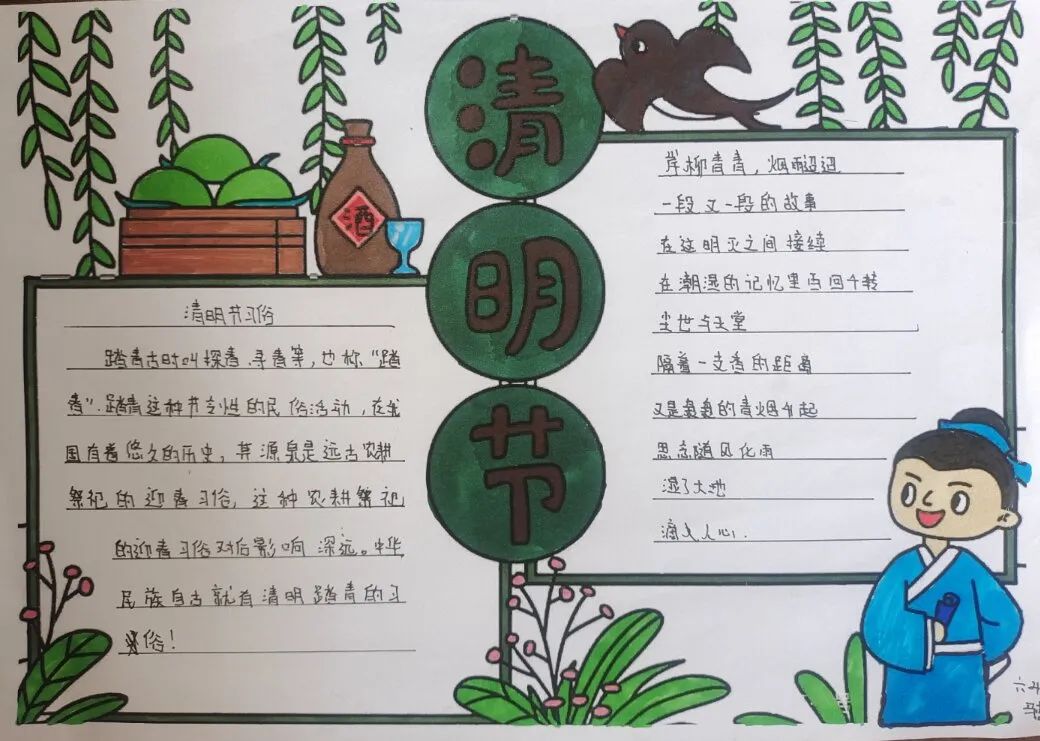 清明节
酒
清明节习俗
踏青古时叫探春.寻春等,也称“踏
青”.踏青这种节令性的民俗活动,在我
国有着悠久的历史,其源泉是远古农耕
祭祀的迎春习俗,这种农耕祭祀
的迎春习俗对后影响深远。中华
民族自古就有清明踏青的习
俗!
岸柳青青,烟雨迢迢
一段又一段的故事
在这明灭之间接续
在潮湿的记忆里百回千转
尘世与天堂
隔着一支香的距离
又是袅袅的青烟升起
思念随风化雨
湿了大地
滴人人心.
六